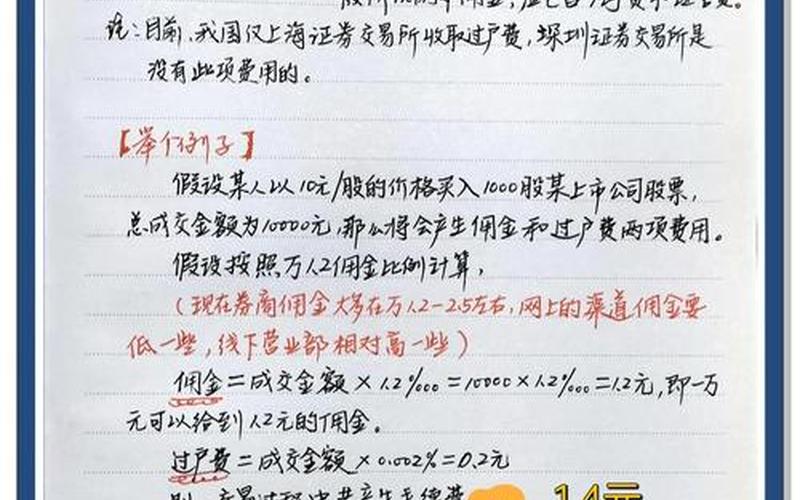 注:目前,我国仅上海证券交易所收取过户费,深圳证券交易所是
没有此项费用的。
【举个例子】
假设某人以10元/股的价格买入1000股某上市公司股票,
总成交金额为10000元,那么将会产生佣金和过户费两项费用。
假设按照万1.2佣金比例计算,
(现在券商佣金大多在万1.2-2.5左右,网上的渠道佣金要
低一些,线下营业部相对高一些)
佣金=成交金额×1.2‱=10000×1.2‱=1.2元,即一万
元可以给到1.2元的佣金。
过户费=成交金额×0.002%=0.2元